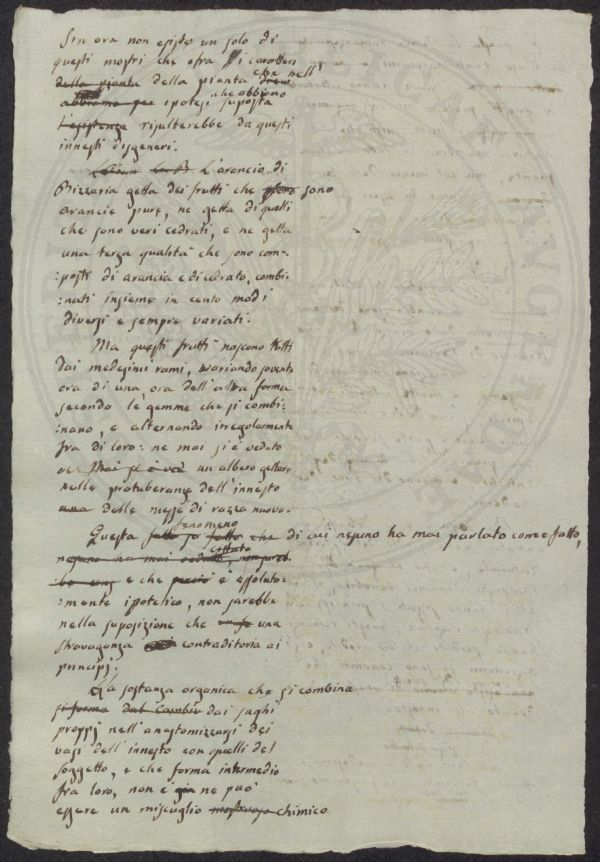 Sin ora non esiste un solo di
questi mostri che ofra i caratteri
della pianta della pianta che nell'
abbiamo per ipotesi che abbiamo suposta
l'esistenza risulterebbe da questi
innesti disgeneri.
L'arancio di
Bizzaria getta dei frutti che sono
arancie pure, ne getta di quelli
che sono veri cedrati, e ne getta
una terza qualità che sono com-
:posti di arancia e di cedrato, combi-
:nati insieme in cento modi
diversi e sempre variati.
Ma questi frutti nascono tutti
dai medesimi rami, variando sovente
ora di una ora dell'altra forma
secondo le gemme che si combi:
:nano, e alternando irregolarmente
fra di loro: ne mai si è veduto
un albero gettare
nelle protuberanze dell'innesto
una delle messe di razza nuova.
Questo fenomeno fatto che di cui nessuno ha mai parlato come fatto,
nessuno ha mai veduto, esistato non sareb.
be e che è assoluta:
:mente ipotetico, non sarebbe
nella suposizione che una
stravaganza contraditoria ai
principj.
La sostanza organica che si combina
si forma dal Cambio dai sughi
proprj nell'anastomizzarsi dei
vasi dell'innesto con quelli del
soggetto, e che forma intermedio
fra loro, non è già ne può
essere un miscuglio mostruoso chimico